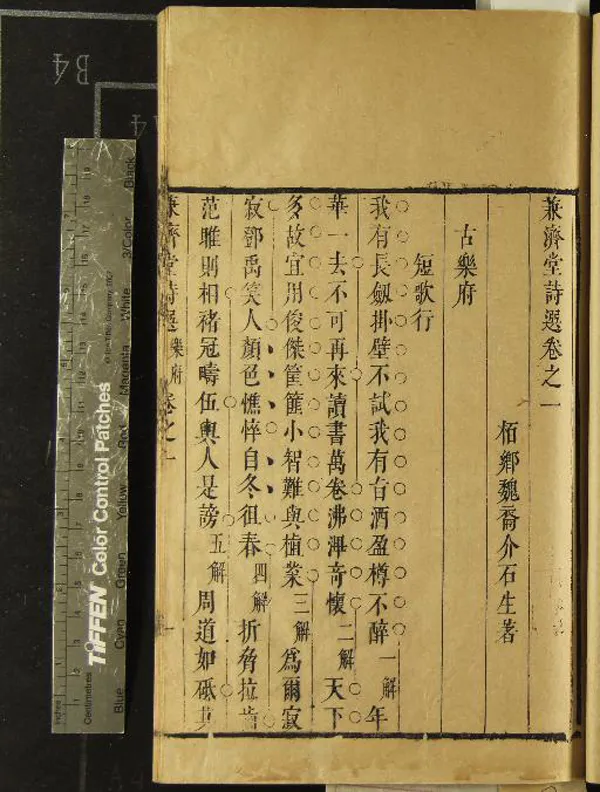 兼濟堂詩選卷之一
栢鄉魏裔介石生著
古樂府
短歌行
我有長劔掛壁不試我有旨酒盈樽不醉一解年
華一去不可再來讀書萬卷沸渾奇懷二解天下
多故宜用俊傑筐篋小智難與植業三解爲爾寂
寂鄧禹笑人顏色憔悴自冬徂春四解折脅拉齒
范雎則相褚冠疇伍輿人是謗五解周道如砥其
兼濟堂詩選 樂府 卷之一 一
B4
Inches
Centimetres
TIFFEN Color Control Patches
Blue
Cyan
Green
Yellow
Red
Magenta
White
3/Color
Black